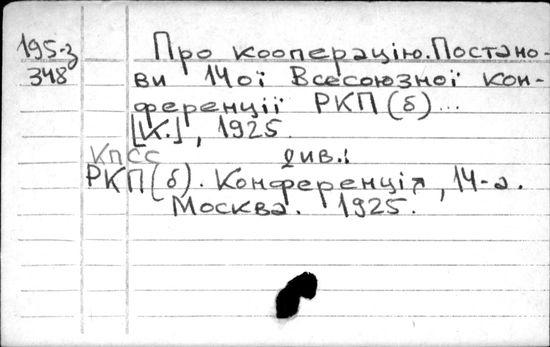 195-з Про кооперацію. Постано-
348 ви 14ої Всесоюзної кон-
ференції РКП(б)...
[К.], 1925.
КПСС див.:
РКП(б). Конференція, 14-а.
Москва. 1925.